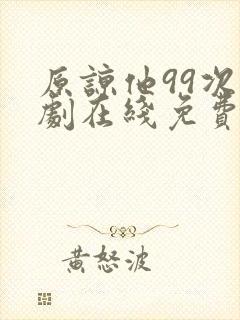 原諒他99次
劇在綫免費
黄怒波